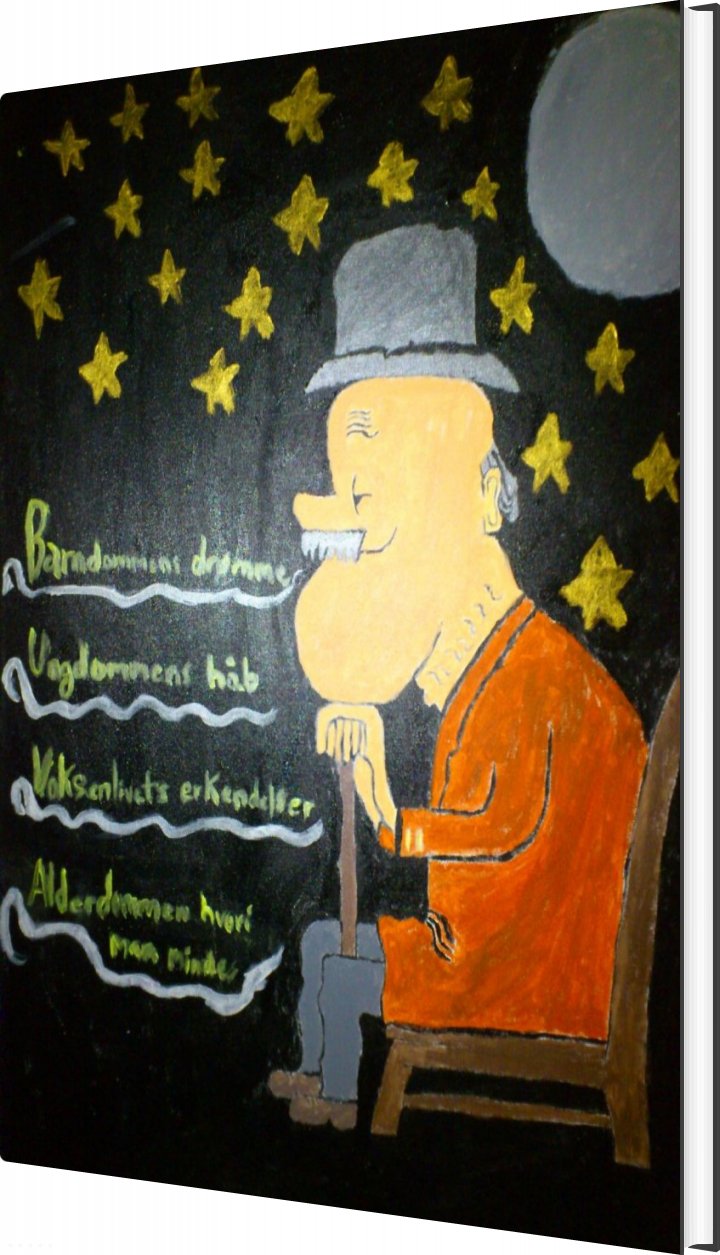 Barndommens drømme
Ungdommens håb
Voksenlivets erkendelser
Alderdommen hvori
man mindes